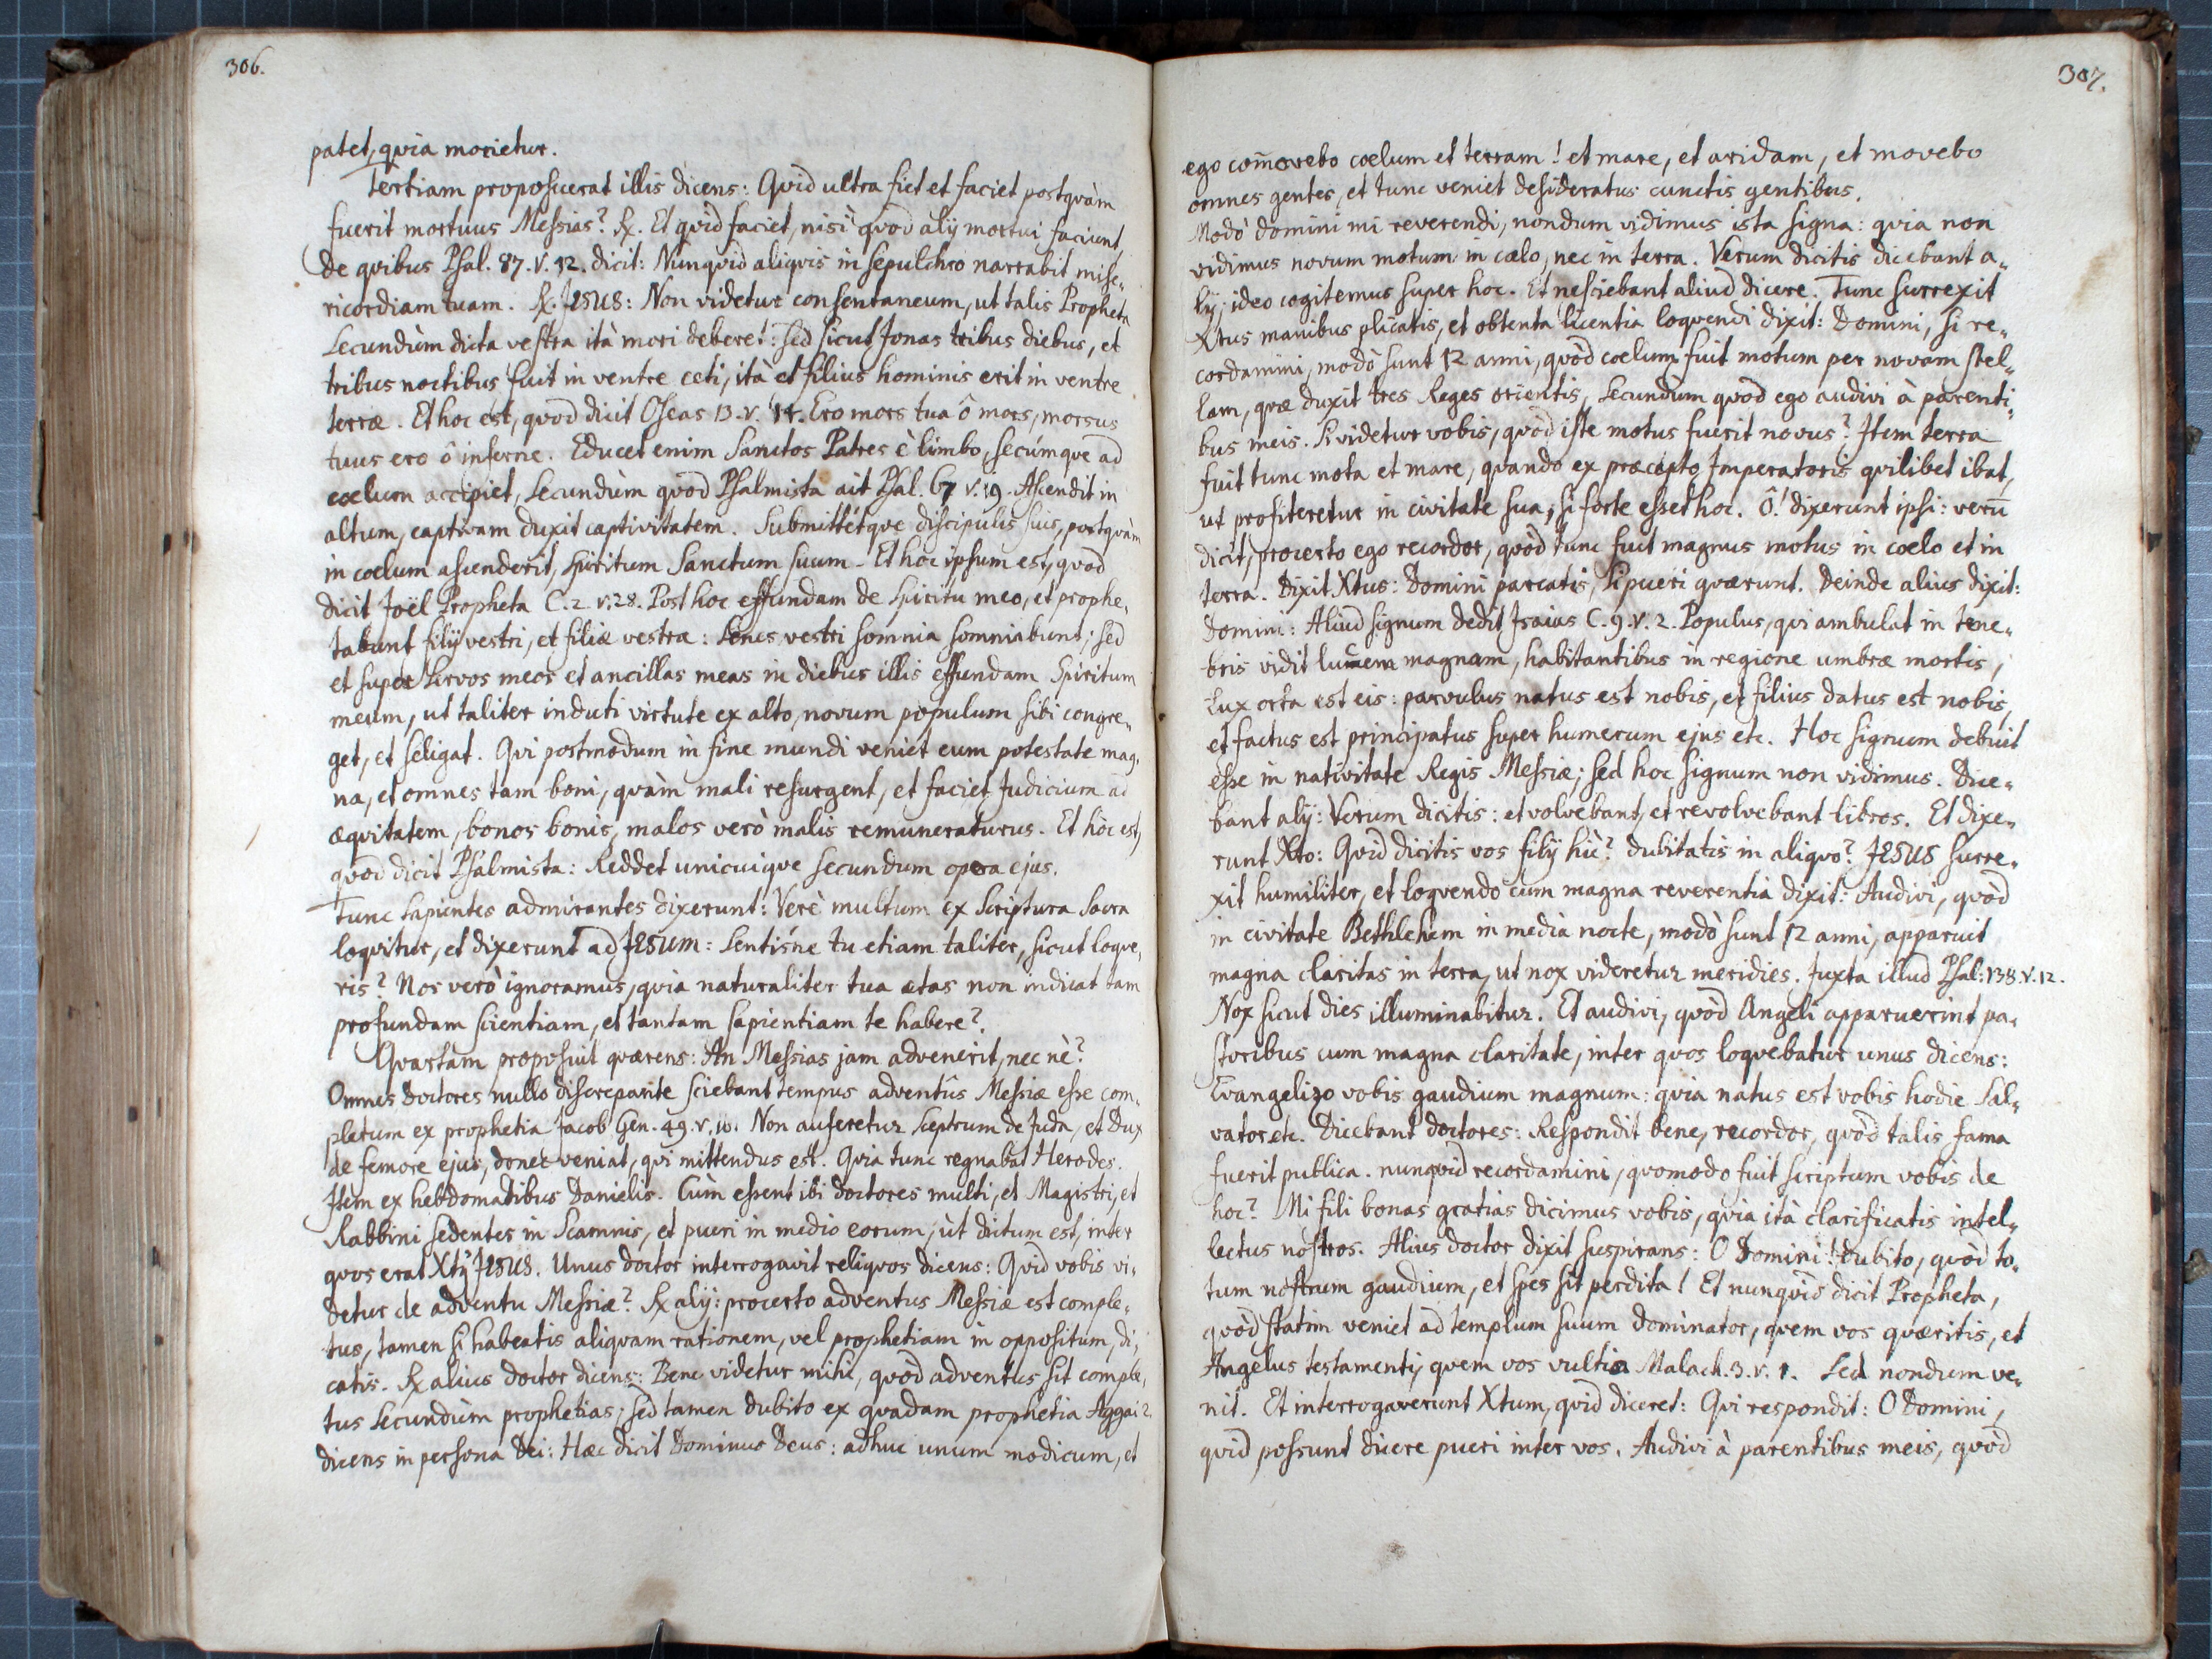 306.
patet, quia morietur.
Tertiam proposuerat illis dicens: Quid ultra fiet et faciet postquàm
fuerit mortuus Messias? R. Et quid faciet, nisi quod alij mortui faciunt,
de quibus Psal. 87. v. 12. dicit: Nunquid aliquis in sepulchro narrabit mise„
ricordiam tuam. R. JESUS: Non videtur consentaneum, ut talis Propheta
secundùm dicta vestra ità mori deberet: sed sicut Jonas tribus diebus, et
tribus noctibus fuit in ventre ceti, ità et filius hominis erit in ventre
terræ. Et hoc est, quod dicit Oseas 13. v. 14. Ero mors tua ô mors, morsus
tuus ero ô inferne. Educet enim Sanctos Patres è limbo, secúmque ad
coelum accipiet, secundùm quod Psalmista ait Psal. 67 v. 19. Ascendit in
altum, captivam duxit captivitatem. Submittétque discipulis suis, postquàm
in coelum ascenderit, Spiritum Sanctum suum. Et hoc ipsum est, quod
dicit Joël Propheta C. 2. v. 28. Post hoc effundam de Spiritu meo, et prophe„
tabunt filij vestri, et filiæ vestræ: Senes vestri somnia somniabunt; sed
et super servos meos et ancillas meas in diebus illis effundam Spiritum
meum, ut taliter induti virtute ex alto, novum populum sibi congre„
get, et seligat. Qui postmodum in fine mundi veniet cum potestate mag„
na, et omnes tam boni, quàm mali resurgent, et faciet Judicium ad
æquitatem, bonos bonis, malos verò malis remuneraturus. Et hoc est,
quod dicit Psalmista: Reddet unicuique secundum opera ejus.
Tunc sapientes admirantes dixerunt: Verè multum ex Scriptura Sacra
loquitur, et dixerunt ad JESUM: Sentisne tu etiam taliter, sicut loque„
ris? Nos verò ignoramus, quia naturaliter tua ætas non indicat tam
profundam scientiam, et tantam sapientiam te habere?
Quartam proposuit quærens: An Messias jam advenerit, nec nè?
Omnes doctores nullo discrepante sciebant tempus adventûs Messiæ esse com„
pletum ex prophetia Jacob Gen. 49. v. 10. Non auferetur sceptrum de Juda, et Dux
de femore ejus, donec veniat, qui mittendus est. Quia tunc regnabat Herodes.
Item ex hebdomadibus Danielis. Cùm essent ibi doctores multi, et Magistri, et
Rabbini sedentes in scamnis, et pueri in medio eorum, ùt dictum est, inter
quos erat Xtus JESUS. Unus doctor interrogavit reliquos dicens: Quid vobis vi„
detur de adventu Messiæ? R alij: procerto adventus Messiæ est comple„
tus, tamen si habeatis aliquam rationem, vel prophetiam in oppositum, di„
catis. R alius doctor dicens: Bene videtur mihi, quòd adventus sit comple„
tus secundùm prophetias; sed tamen dubito ex quadam prophetia Aggæi 2.
dicens in persona Dei: Hæc dicit Dominus Deus: adhuc unum modicum, et
307.
ego com̄ovebo coelum et terram! et mare, et aridam, et movebo
omnes gentes, et tunc veniet desideratus cunctis gentibus.
Modò domini mi reverendi, nondum vidimus ista signa: quia non
vidimus novum motum in cœlo, nec in terra. Verum dicitis dicebant a„
lij; ideo cogitemus super hoc. Et nesciebant aliud dicere. Tunc surrexit
Xtus manibus plicatis, et obtenta licentia loquendi dixit: Domini, si re„
cordamini, modò sunt 12 anni, quòd coelum fuit motum per novam stel„
lam, quæ duxit tres Reges orientis, secundùm quod ego audivi à parenti„
bus meis. Si videtur vobis, quòd iste motus fuerit novus? Item terra
fuit tunc mota et mare, quando ex præcepto Imperatoris quilibet ibat,
ut profiteretur in civitate sua, si forte esset hoc. Ô! dixerunt ipsi: verū
dicit, procerto ego recordor, quòd tunc fuit magnus motus in coelo et in
terra. Dixit Xtus: Domini parcatis, si pueri quærunt. Deinde alius dixit:
Domini: Aliud signum dedit Isaias C. 9. v. 2. Populus, qui ambulat in tene„
bris vidit lucem magnam, habitantibus in regione umbræ mortis,
Lux orta est eis: parvulus natus est nobis, et filius datus est nobis,
et factus est principatus super humerum ejus etc. Hoc signum debuit
esse in nativitate Regis Messiæ; sed hoc signum non vidimus. Dice„
bant alij: Verum dicitis: et volvebant, et revolvebant libros. Et dixe„
runt Xto: Quid dicitis vos filij hìc? dubitatis in aliquo? JESUS surre„
xit humiliter, et loquendo cum magna reverentia dixit: Audivi, quòd
in civitate Bethlehem in mediâ nocte, modò sunt 12 anni, apparuit
magna claritas in terra, ut nox videretur meridies. Juxta illud Psal: 138. v. 12.
Nox sicut dies illuminabitur. Et audivi, quòd Angeli apparuerint pa„
storibus cum magna claritate, inter quos loquebatur unus dicens:
Evangelizo vobis gaudium magnum: quia natus est vobis hodie Sal„
vator etc. Dicebant doctores: Respondit bene, recordor, quòd talis fama
fuerit publica. nunquid recordamini, quomodo fuit scriptum vobis de
hoc? Mi fili bonas gratias dicimus vobis, quia ità clarificatis intel„
lectus nostros. Alius doctor dixit suspirans: O Domini! dubito, quòd to„
tum nostrum gaudium, et spes sit perdita! Et nunquid dicit Propheta,
quòd statim veniet ad templum suum dominator, quem vos quæritis, et
Angelus testamenti, quem vos vultis Malach. 3. v. 1. Sed nondum ve„
nit. Et interrogaverunt Xtum, quid diceret: Qui respondit: O Domini,
quid possunt dicere pueri inter vos. Audivi à parentibus meis, quòd